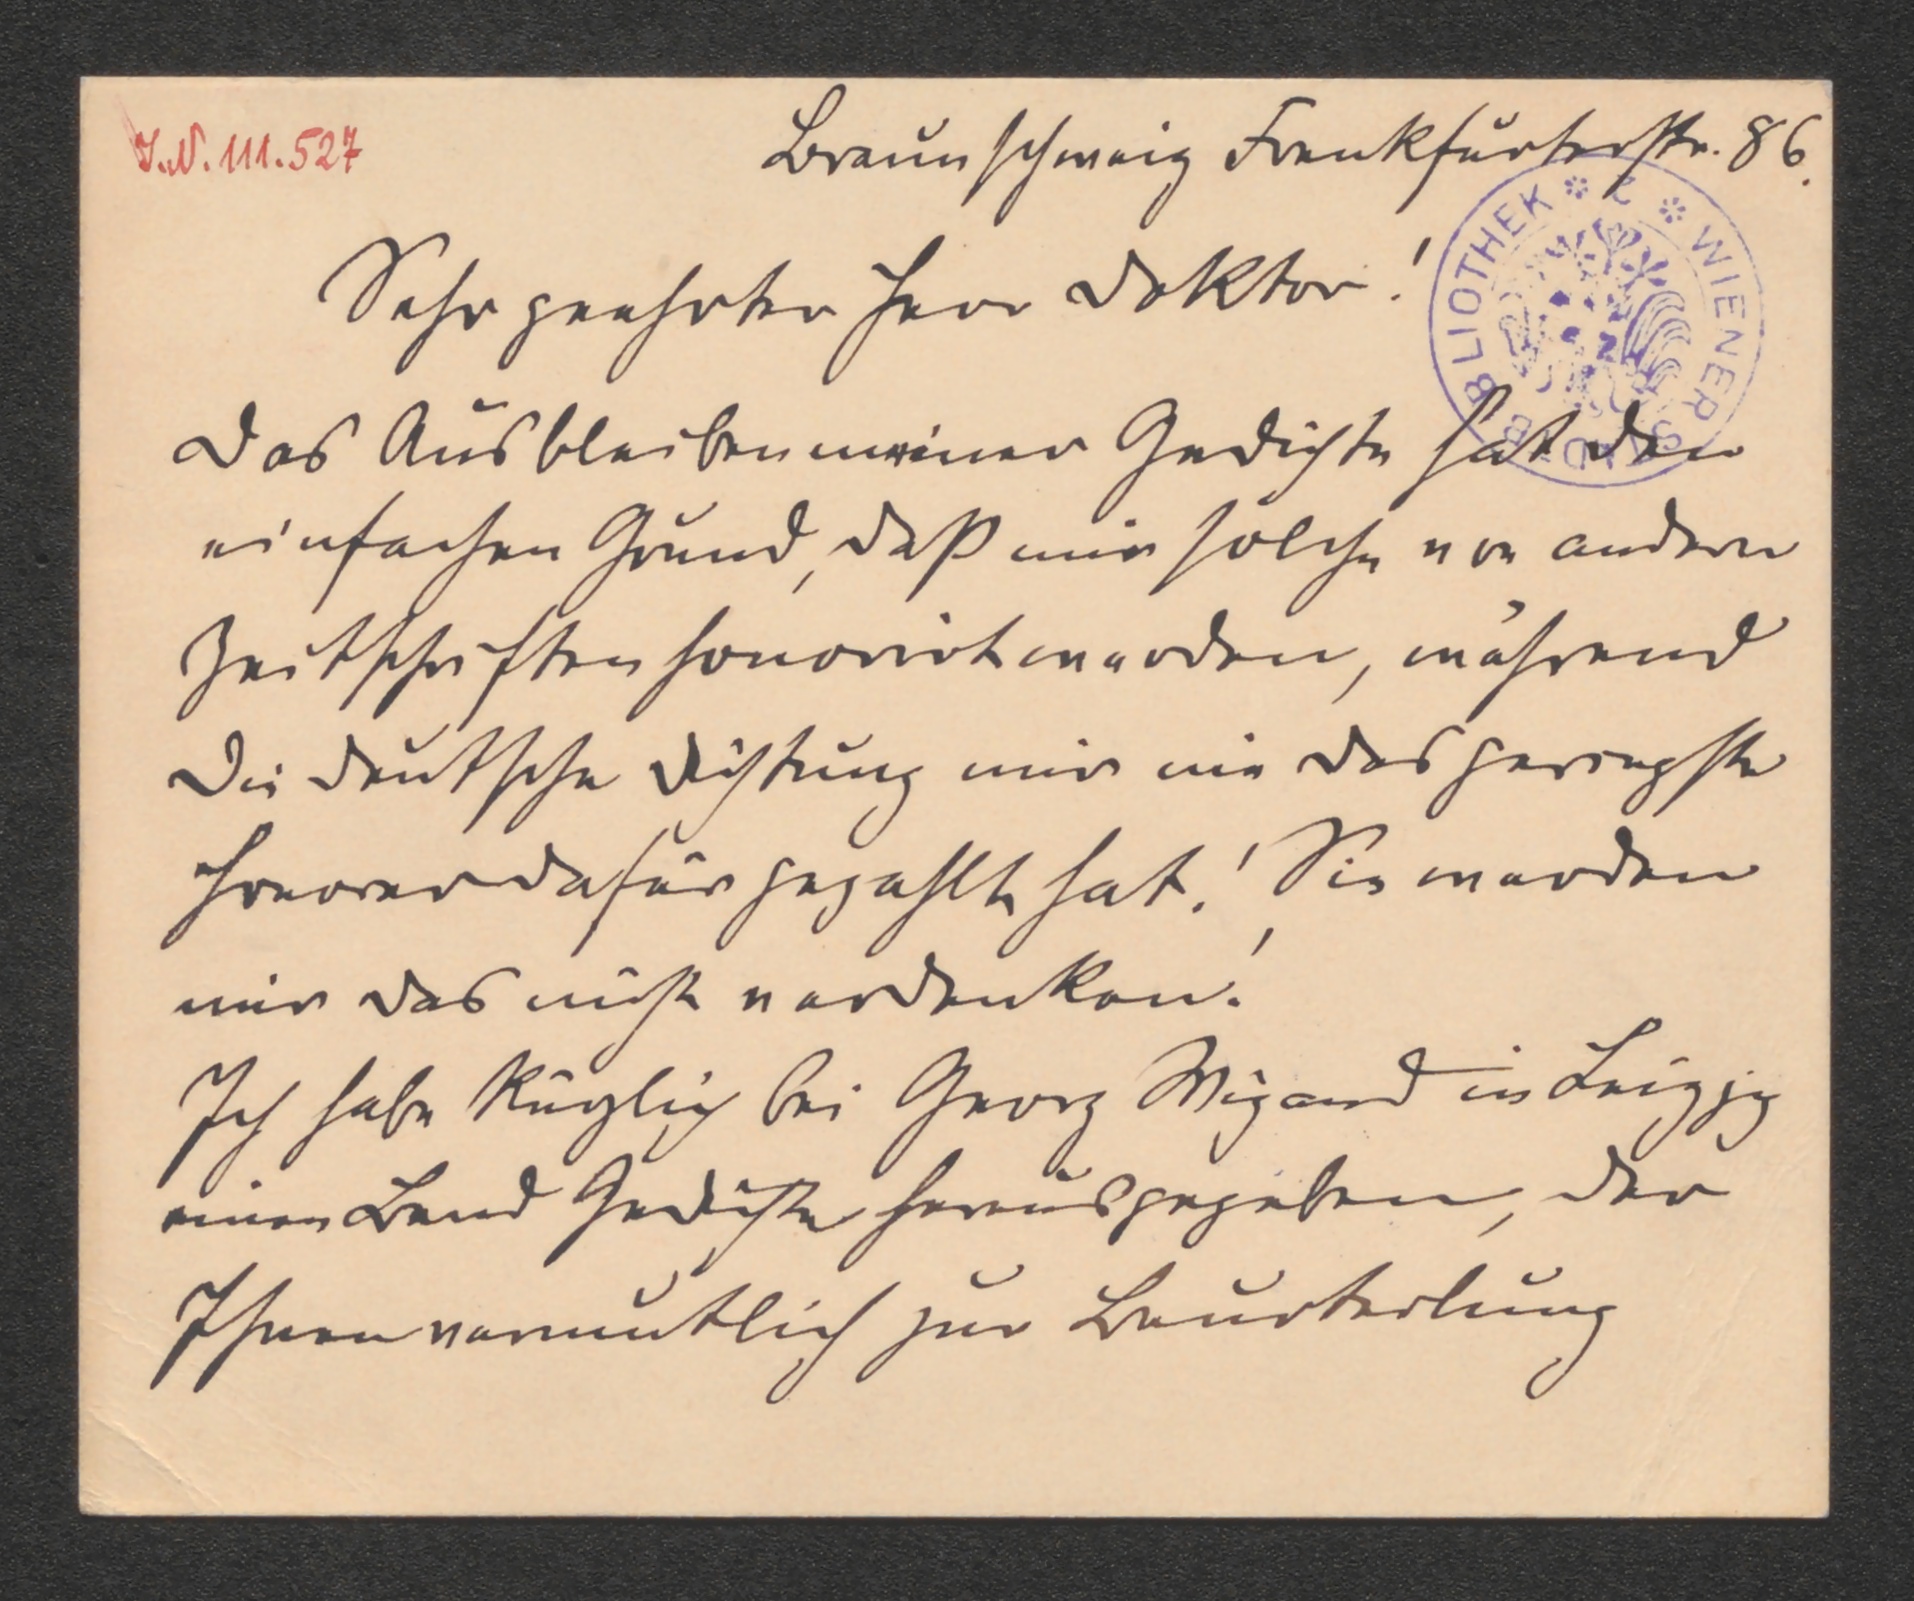 I.N. 111.527
Braunschweig Frankfurterstr. 86.
BIBLIOTHEK * 2 * WIENER STADT
Sehr geehrter Herr Doktor!
Das Ausbleiben meiner Gedichte hat den
einfachen Grund, daß mir solche von andern
Zeitschriften honorirt werden, während
die Deutsche Dichtung mir nie das geringste
Honorar dafür gezahlt hat! Sie werden
mir das nicht verdenken!
Ich habe kürzlich bei Georg Wigand in Leipzig
einen Band Gedichte herausgegeben, der
Ihnen vermutlich zur Beurteilung